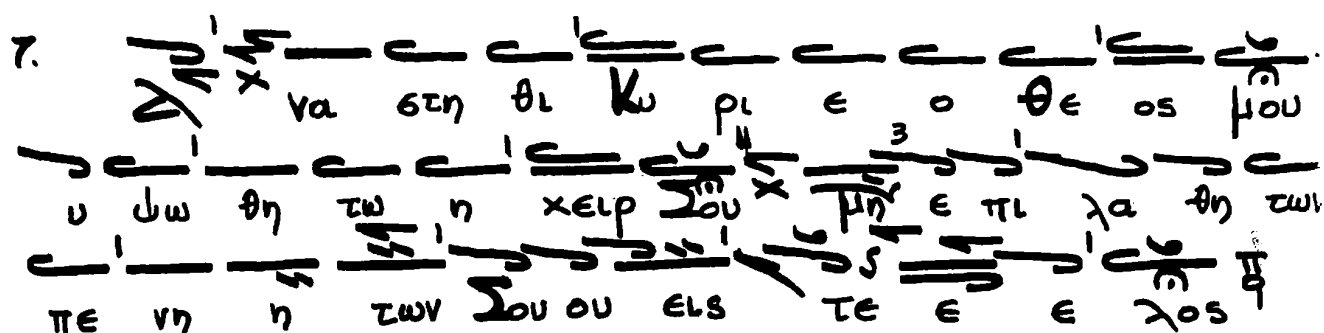 7. Α να στη θι Κυ ρι ε ο Θε ος μου
υ ψω θη τω η χειρ Σου μη ε πι λα θη των
πε νη η των Σου ου εις τε ε ε λος